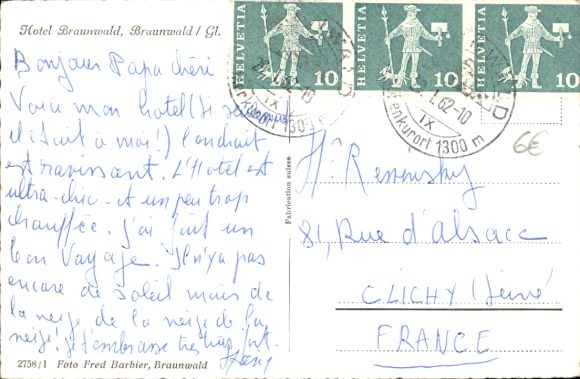 Hotel Braunwald, Braunwald / Gl.
Bonjour Papa chéri
Voici mon hotel (Si seulement
il était à moi!) l'endroit
est ravissant. L'Hotel est
ultra-chic et un peu trop
chauffée. j'ai fait un
bon Voyage. Il n'y a pas
encore de soleil mais de
la neige de la neige de la
neige! je t'embrasse très très fort.
2758/1 Foto Fred Barbier, Braunwald
Fabrication suisse
HELVETIA 10
HELVETIA 10
HELVETIA 10
1.62-10
IX
1300 m
1.62-10
IX
Höhenkurort 1300 m
6€
81, Rue d'alsace
CLICHY (Seine)
FRANCE